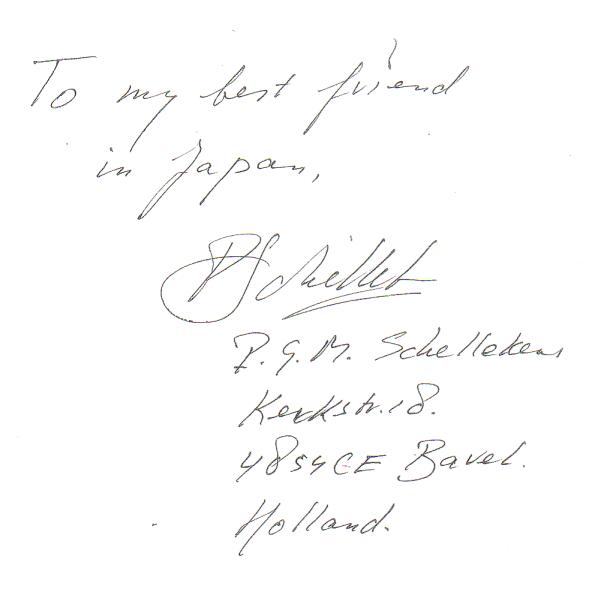 To my best friend
in Japan,
PSchellek
P. G. M. Schellekens
Kerkstr. 18.
4854CE Bavel.
Holland.